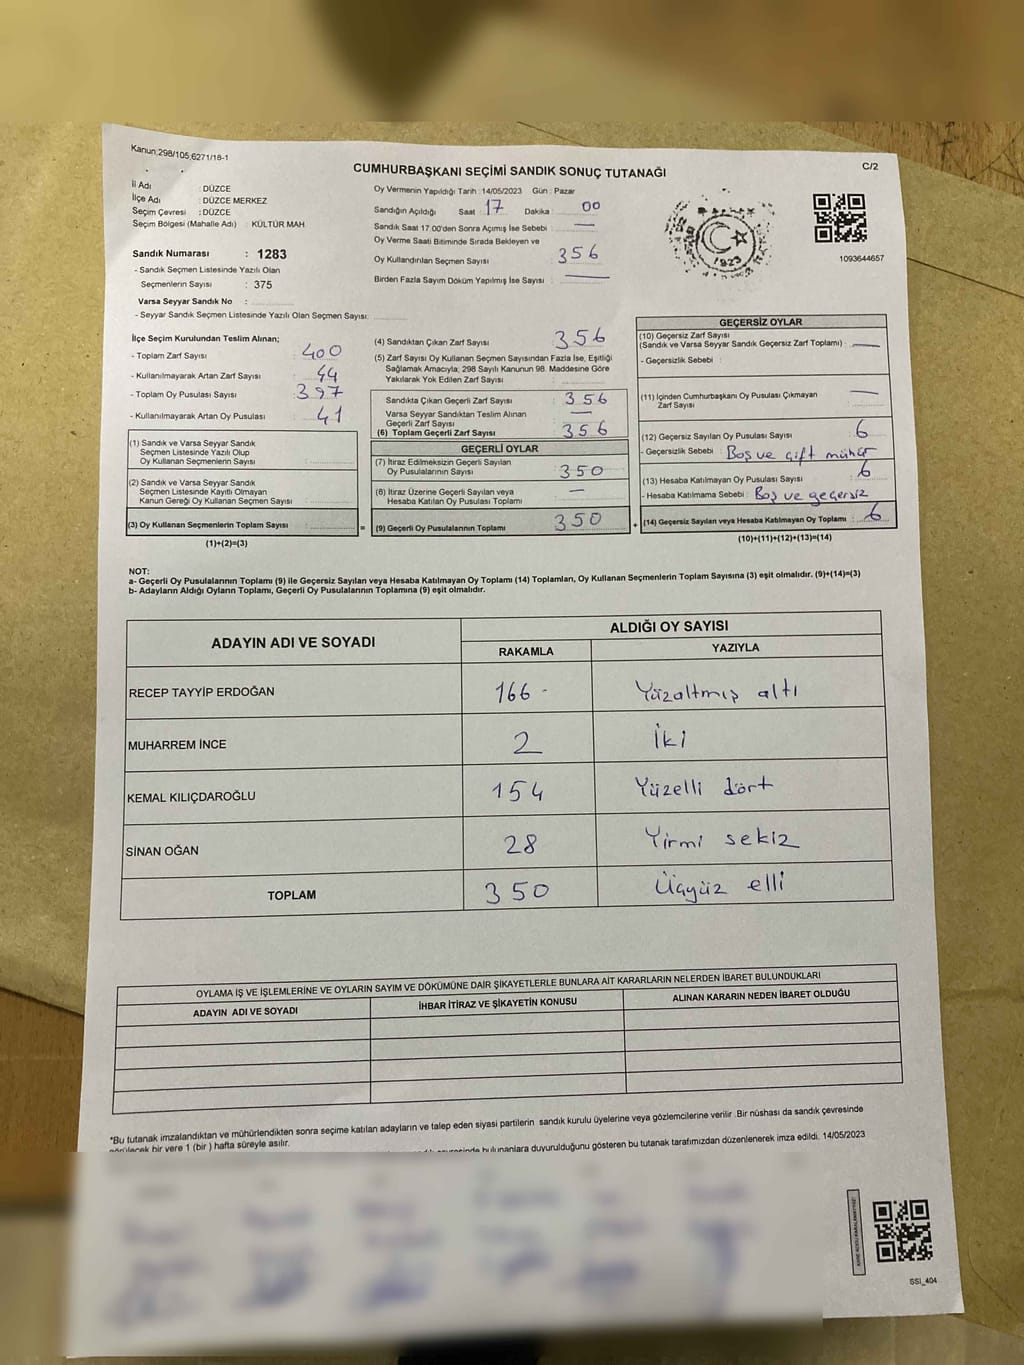 Kanun:298/105,6271/18-1
CUMHURBAŞKANI SEÇİMİ SANDIK SONUÇ TUTANAĞI
C/2
İl Adı : DÜZCE
İlçe Adı : DÜZCE MERKEZ
Seçim Çevresi : DÜZCE
Seçim Bölgesi (Mahalle Adı) : KÜLTÜR MAH
Sandık Numarası : 1283
- Sandık Seçmen Listesinde Yazılı Olan
Seçmenlerin Sayısı : 375
Varsa Seyyar Sandık No :
- Seyyar Sandık Seçmen Listesinde Yazılı Olan Seçmen Sayısı:
Oy Vermenin Yapıldığı Tarih : 14/05/2023 Gün : Pazar
Sandığın Açıldığı Saat : 17 Dakika : 00
Sandık Saat 17:00'den Sonra Açımış İse Sebebi : —
Oy Verme Saati Bitiminde Sırada Bekleyen ve
Oy Kullandırılan Seçmen Sayısı : 356
Birden Fazla Sayım Döküm Yapılmış İse Sayısı : —
1923
1093644657
İlçe Seçim Kurulundan Teslim Alınan;
- Toplam Zarf Sayısı : 400
- Kullanılmayarak Artan Zarf Sayısı : 44
- Toplam Oy Pusulası Sayısı : 397
- Kullanılmayarak Artan Oy Pusulası : 41
(1) Sandık ve Varsa Seyyar Sandık
Seçmen Listesinde Yazılı Olup
Oy Kullanan Seçmenlerin Sayısı :
(2) Sandık ve Varsa Seyyar Sandık
Seçmen Listesinde Kayıtlı Olmayan
Kanun Gereği Oy Kullanan Seçmen Sayısı :
(3) Oy Kullanan Seçmenlerin Toplam Sayısı : =
(1)+(2)=(3)
(4) Sandıktan Çıkan Zarf Sayısı : 356
(5) Zarf Sayısı Oy Kullanan Seçmen Sayısından Fazla İse, Eşitliği
Sağlamak Amacıyla; 298 Sayılı Kanunun 98. Maddesine Göre
Yakılarak Yok Edilen Zarf Sayısı :
Sandıkta Çıkan Geçerli Zarf Sayısı : 356
Varsa Seyyar Sandıktan Teslim Alınan
Geçerli Zarf Sayısı : —
(6) Toplam Geçerli Zarf Sayısı : 356
GEÇERLİ OYLAR
(7) İtiraz Edilmeksizin Geçerli Sayılan
Oy Pusulalarının Sayısı : 350
(8) İtiraz Üzerine Geçerli Sayılan veya
Hesaba Katılan Oy Pusulası Toplamı : —
(9) Geçerli Oy Pusulalarının Toplamı : 350 +
GEÇERSİZ OYLAR
(10) Geçersiz Zarf Sayısı
(Sandık ve Varsa Seyyar Sandık Geçersiz Zarf Toplamı) : —
- Geçersizlik Sebebi :
(11) İçinden Cumhurbaşkanı Oy Pusulası Çıkmayan
Zarf Sayısı : —
(12) Geçersiz Sayılan Oy Pusulası Sayısı : 6
- Geçersizlik Sebebi : Boş ve çift mühür
(13) Hesaba Katılmayan Oy Pusulası Sayısı : 6
- Hesaba Katılmama Sebebi : Boş ve geçersiz
(14) Geçersiz Sayılan veya Hesaba Katılmayan Oy Toplamı : 6
(10)+(11)+(12)+(13)=(14)
NOT:
a- Geçerli Oy Pusulalarının Toplamı (9) ile Geçersiz Sayılan veya Hesaba Katılmayan Oy Toplamı (14) Toplamları, Oy Kullanan Seçmenlerin Toplam Sayısına (3) eşit olmalıdır. (9)+(14)=(3)
b- Adayların Aldığı Oyların Toplamı, Geçerli Oy Pusulalarının Toplamına (9) eşit olmalıdır.
ADAYIN ADI VE SOYADI
ALDIĞI OY SAYISI
RAKAMLA YAZIYLA
RECEP TAYYİP ERDOĞAN 166- Yüzaltmış altı
MUHARREM İNCE 2 İki
KEMAL KILIÇDAROĞLU 154 Yüzelli dört
SİNAN OĞAN 28 Yirmi sekiz
TOPLAM 350 Üçyüz elli
OYLAMA İŞ VE İŞLEMLERİNE VE OYLARIN SAYIM VE DÖKÜMÜNE DAİR ŞİKAYETLERLE BUNLARA AİT KARARLARIN NELERDEN İBARET BULUNDUKLARI
ADAYIN ADI VE SOYADI İHBAR İTİRAZ VE ŞİKAYETİN KONUSU ALINAN KARARIN NEDEN İBARET OLDUĞU
*Bu tutanak imzalandıktan ve mühürlendikten sonra seçime katılan adayların ve talep eden siyasi partilerin sandık kurulu üyelerine veya gözlemcilerine verilir .Bir nüshası da sandık çevresinde
görülecek bir yere 1 (bir ) hafta süreyle asılır.
bulunanlara duyurulduğunu gösteren bu tutanak tarafımızdan düzenlenerek imza edildi. 14/05/2023
SSI_404